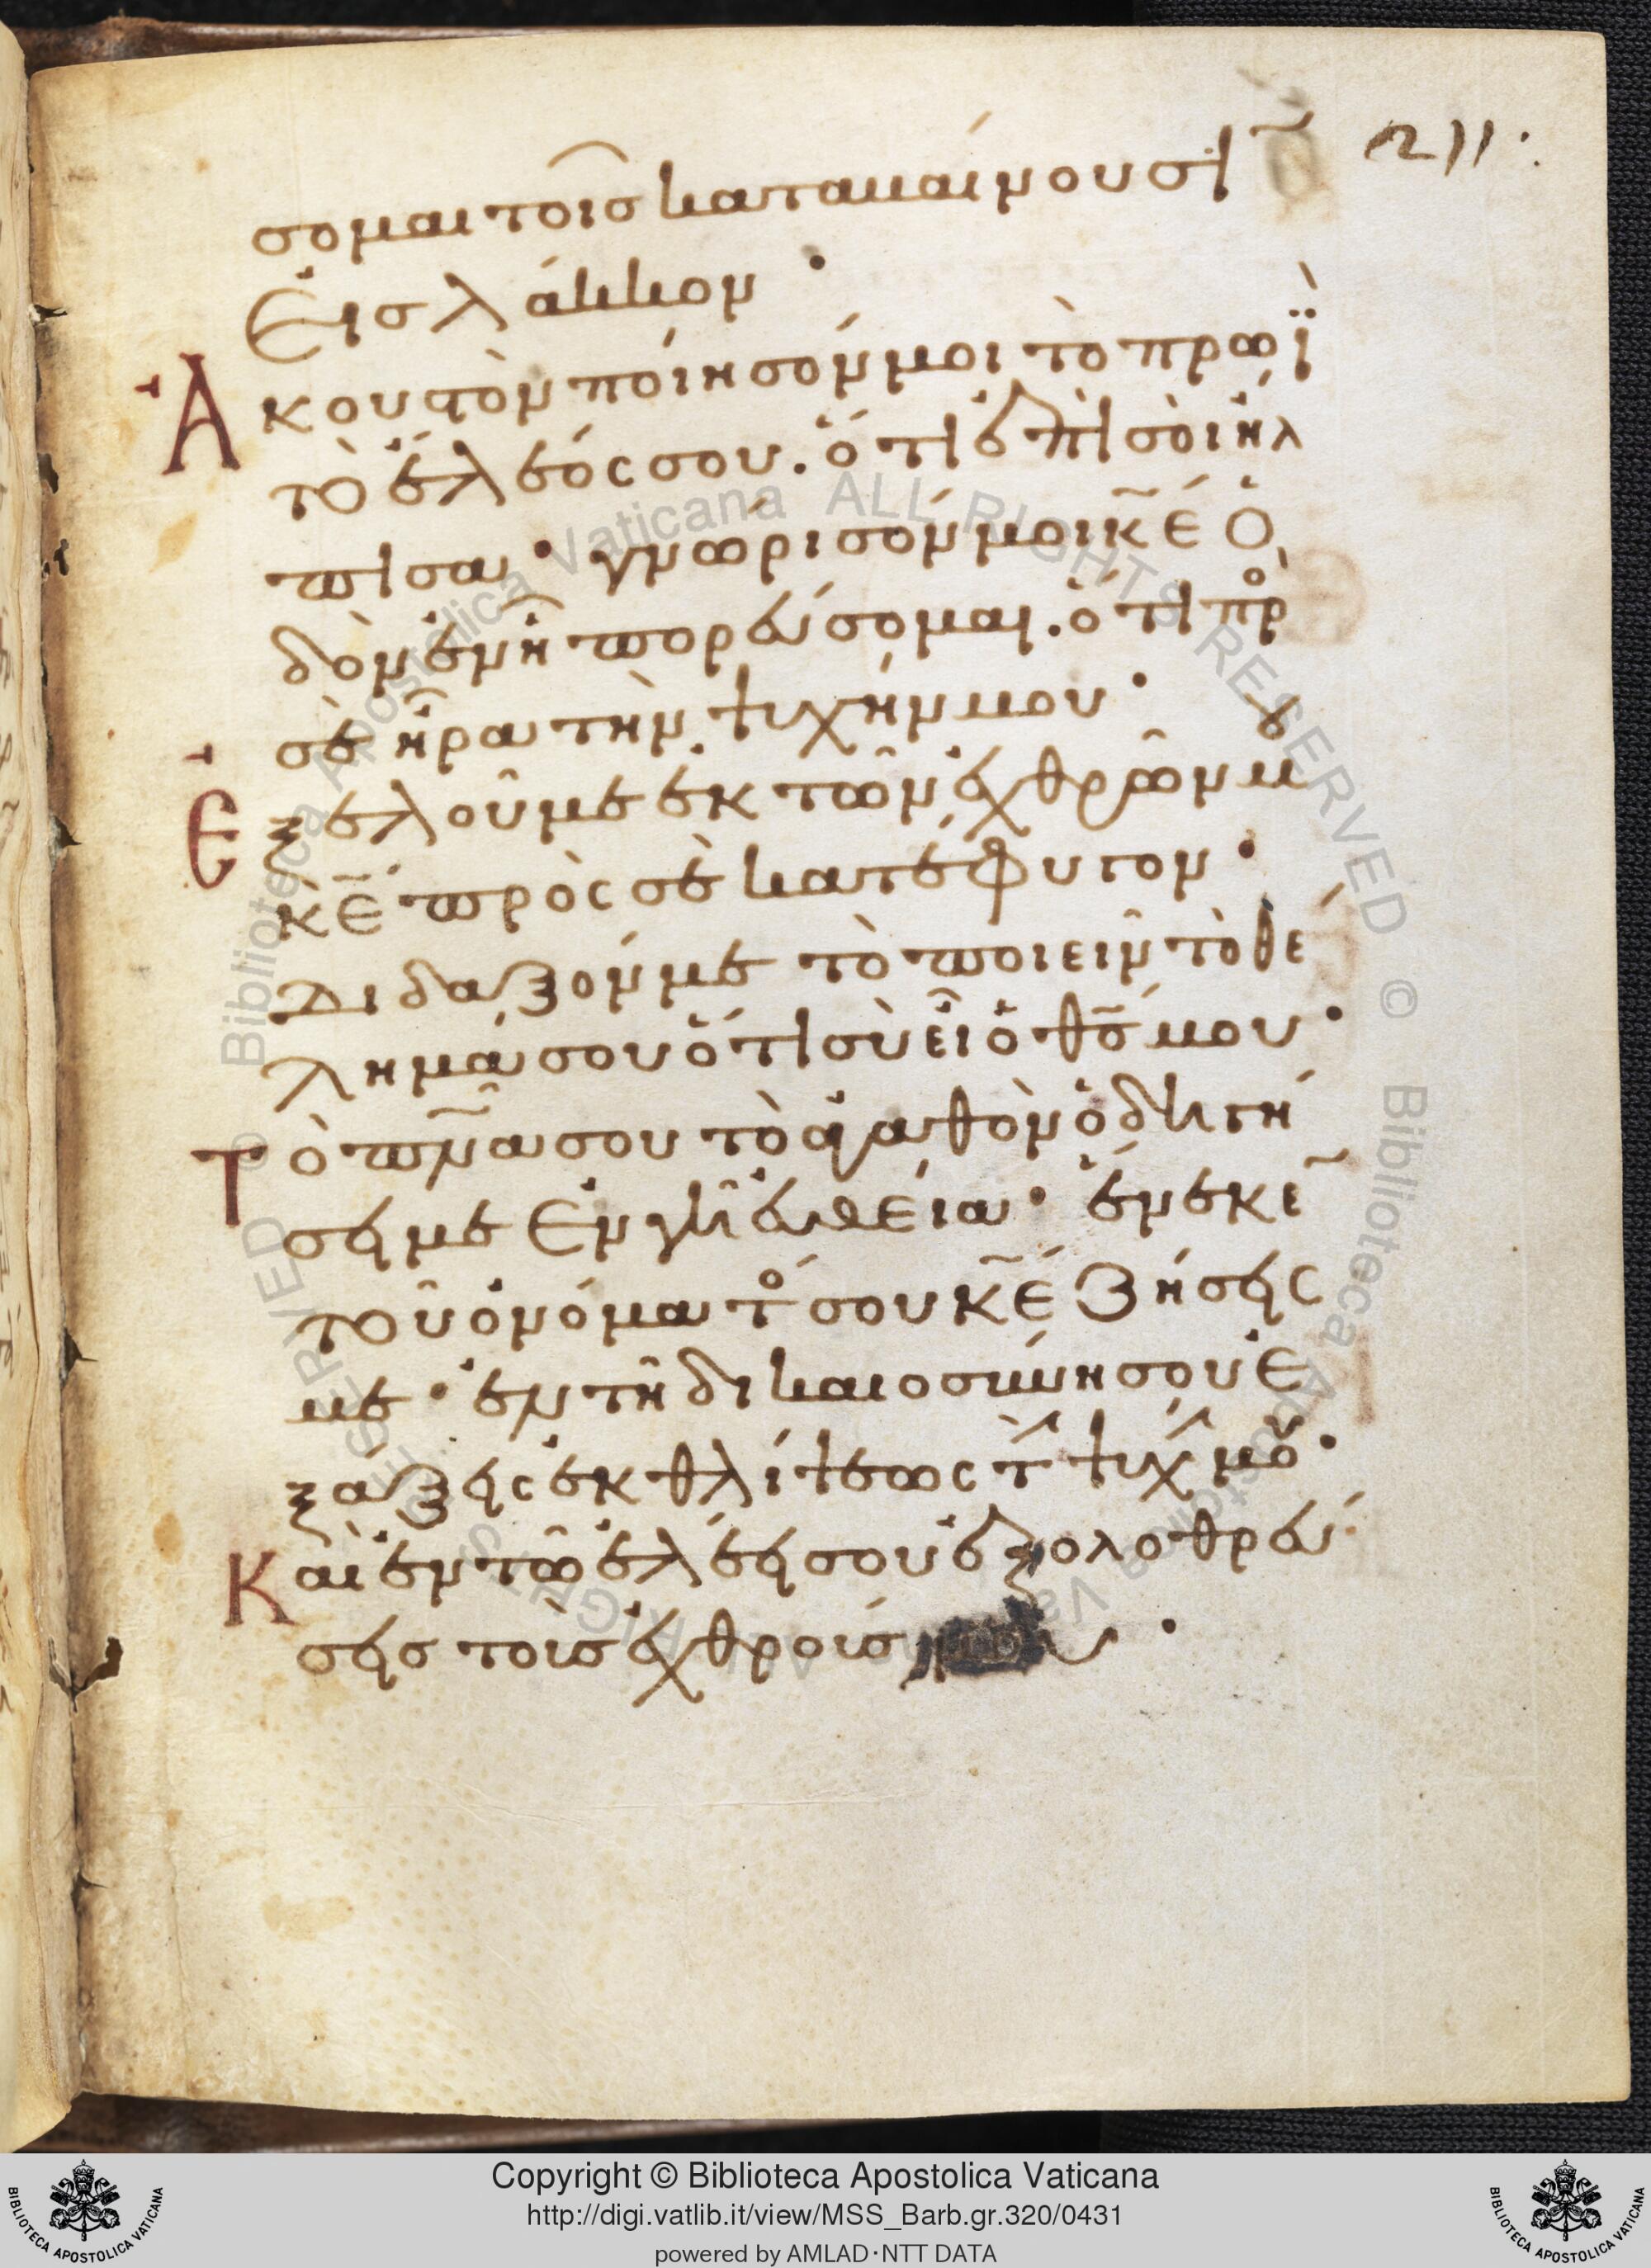 211·
σομαι τοῖς καταβαίνουσι
Εἰς λάκκον·
Ἀκουστὸν ποίησόν μοι τὸ πρωῒ
τὸ ἔλεός σου. ὅτι ἐπὶ σοὶ ἤλ
πισα· γνώρισόν μοι κ̅ε̅ ὁ
δὸν ἐν ᾗ πορεύσομαι. ὅτι πρ
σὲ ἦρα τὴν ψυχήν μου·
Ἐξελοῦ με ἐκ τῶν ἐχθρῶν μου
κ̅ε̅ πρὸς σὲ κατέφυγον·
διδαξόν με τὸ ποιεῖν τὸ θέ
λημά σου ὅτι σὺ εἶ ὁ θ̅ς̅ μου·
Τὸ πν̅α̅ σου τὸ ἀγαθὸν ὁδηγή
σει με Ἐν γῇ εὐθεία· ἕνεκε
τοῦ ὀνόματο σου κ̅ε̅ ζήσεις
με· ἐν τῇ δικαιοσύνη σου ἐ
ξάξεις ἐκ θλίψεως τ ψυχ μου·
Καὶ ἐν τῶ ἐλέει σου ἐξολοθρεύ
σεις τοις ἐχθροίς
Copyright © Biblioteca Apostolica Vaticana
http://digi.vatlib.it/view/MSS_Barb.gr.320/0431
powered by AMLAD·NTT DATA